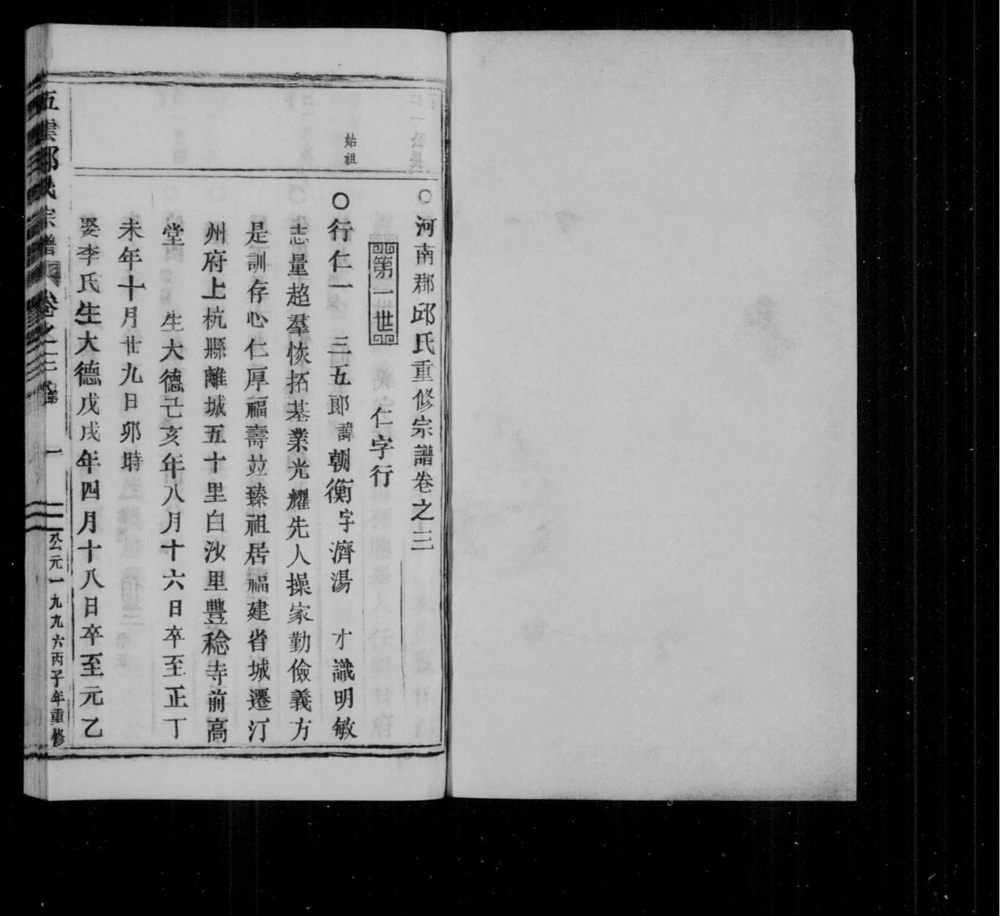 ○河南郡邱氏重修宗譜卷之三
第一世 仁字行
始祖
○行仁一 三五郎諱朝衡字濟湯 才識明敏
志量超羣恢拓基業光耀先人操家勤儉義方
是訓存心仁厚福壽竝臻祖居福建省城遷汀
州府上杭縣離城五十里白沙里豐稔寺前高
堂 生大德己亥年八月十六日卒至正丁
未年十月廿九日卯時
娶李氏生大德戊戌年四月十八日卒至元乙
五雲邱氏宗譜 卷之三 一 公元一九九六丙子年重修